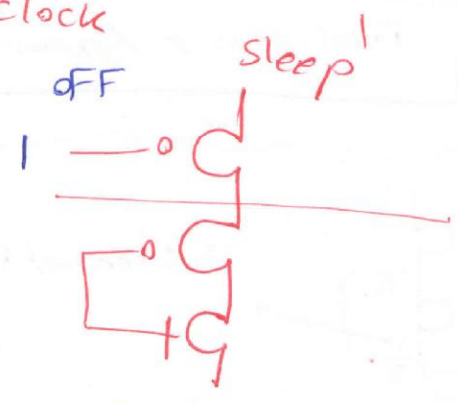 Clock
sleep'
OFF
1